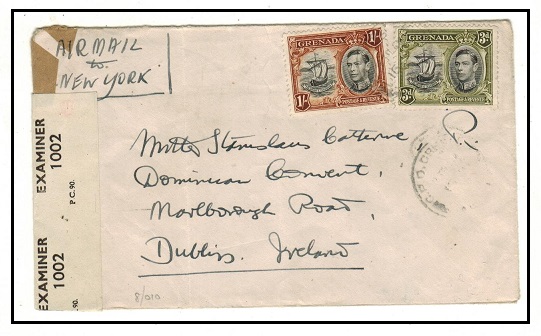 AIR MAIL
to
NEW YORK
GRENADA
1/-
POSTAGE & REVENUE
GRENADA
3d
3d
POSTAGE & REVENUE
EXAMINER
1002
P.C. 90.
EXAMINER
1002
90.
Stanislaus Catterine
Dominican Convent,
Marlborough Road,
Dublin, Ireland
8/010